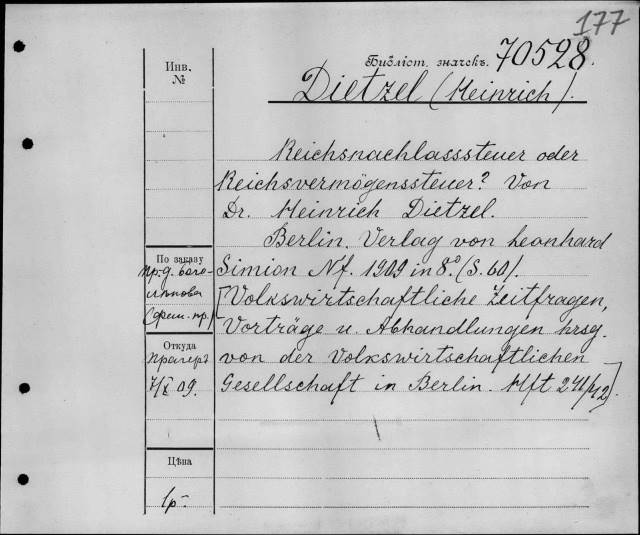 177
Библіот. значекъ. 70528.
Dietzel (Heinrich).
Инв.
№
Reichsnachlasssteuer oder
Reichsvermögenssteuer? Von
Dr. Heinrich Dietzel.
Berlin. Verlag von Leonhard
Simion Nf. 1909 in 8º. (S. 60).
[Volkswirtschaftliche Zeitfragen,
Vorträge u. Abhandlungen hrsg.
von der Volkswirtschaftlichen
Gesellschaft in Berlin. Hft 241/42]
По заказу
пр. д. Бого
лѣпова
Откуда
Прагеръ
09.
Цѣна
1р-